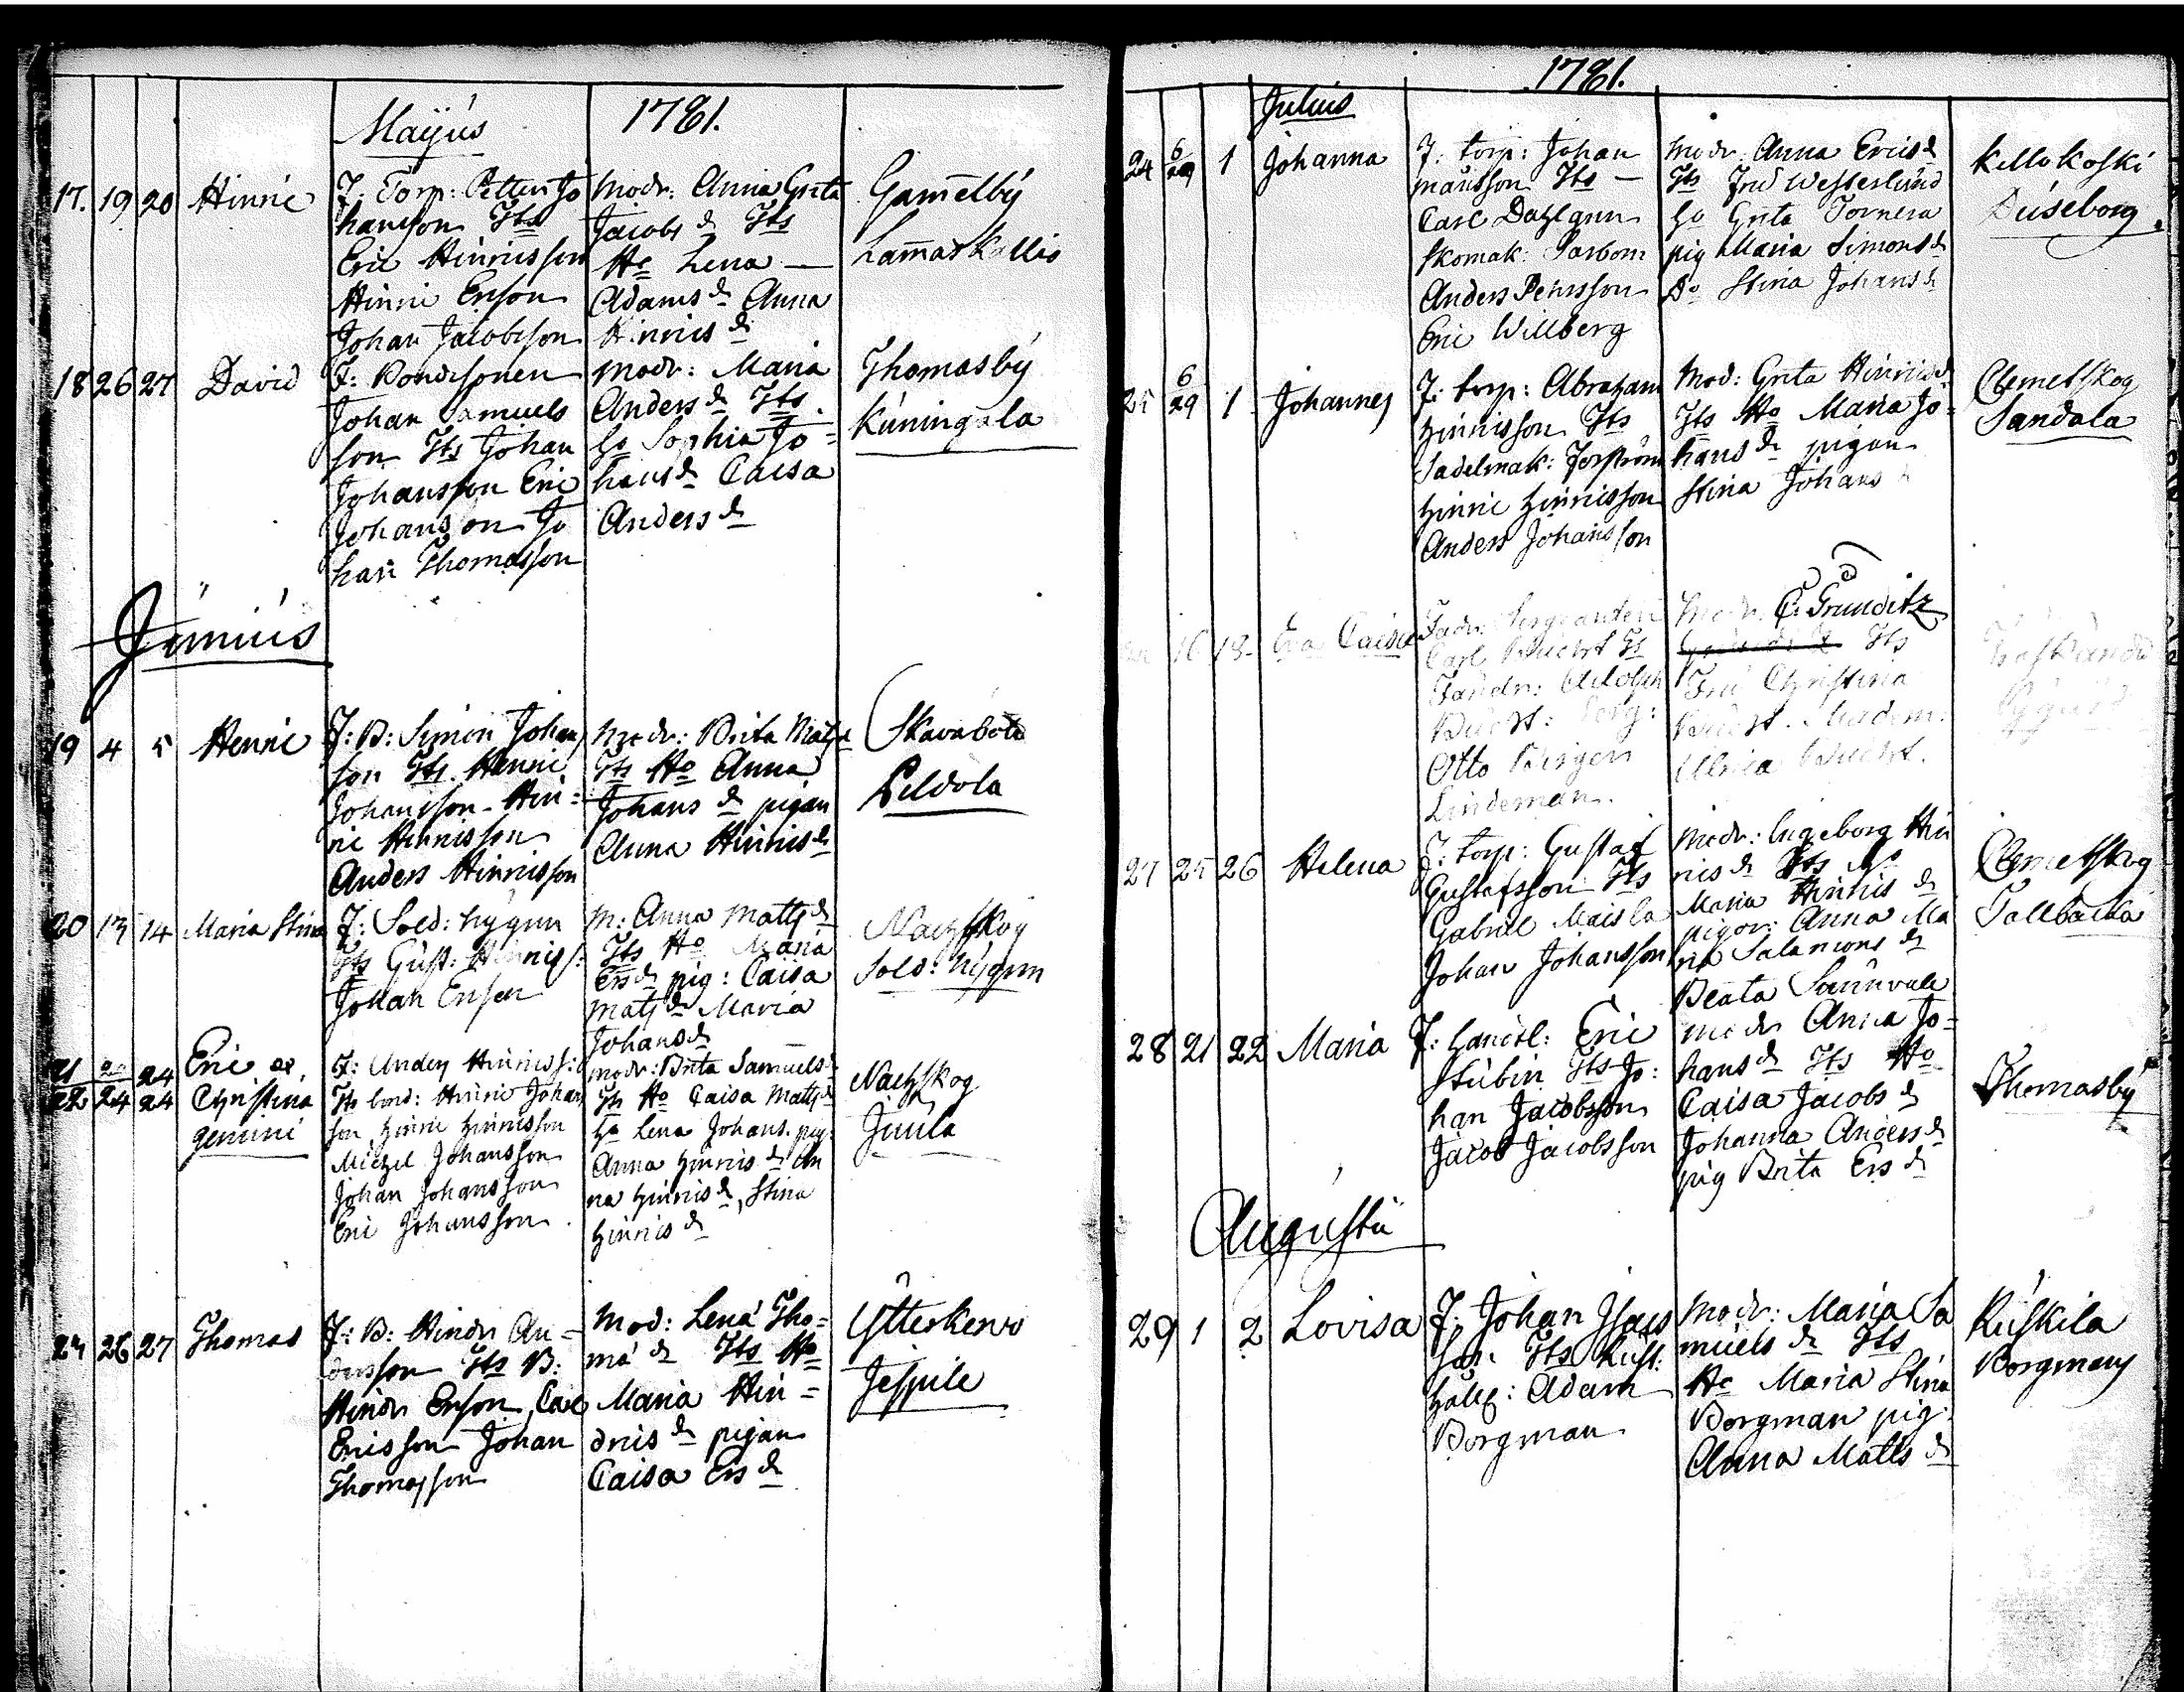 Maijus 1781.
17. 19 20 Hinric
F: Torp: Petter Jo
hansson Tts
Eric Hinricsson
Hinric Ersson
Johan Jacobsson
Modr: Anna Greta
Jacobs dr Tts
Ho Lena
Adams dr Anna
Hinrics dr
Gamelby
Lamaskallio
18 26 27 David
F: Bondesonen
Johan Samuels
son Tts Johan
Johansson Eric
Johanson Jo
han Thomasson
Modr: Maria
Anders dr Tts.
Ho Sophia Jo=
hans dr Caisa
Anders dr
Thomasby
Kuningala
Junius
19 4 5 Henric
F: B: Simon Johans
son Tts. Henric
Johansson Hin=
ric Hinricsson
Anders Hinricsson
Modr: Brita Mats dr
Tts Ho Anna
Johans dr pigan
Anna Hinrics dr
Skavaböle
Peldola
20 13 14 Maria Stina
F: Sold: Nygren
Tts Gust: Hinrics:
Johan Ersson
M: Anna Matts dr
Tts Ho Maria
Ers dr pig: Caisa
Mats dr Maria
Johans dr
Nachskog
Sold: Nygren
21 24
22 24 24
Eric et
Christina
gemini
F: Anders Hinricss:
Tts bond: Hinric Johan
son Hinric Hinricsson
Michel Johansson
Johan Johansson
Eric Johansson
Modr: Brita Samuels dr
Tts Ho Caisa Matts dr
Ho Lena Johans. pig:
Anna Hinrics dr An
na Hinrics dr, Stina
Hinrics dr
Nachskog
Juula
23 26 27 Thomas
F: B: Hindr An=
dersson Tts B:
Hindr Ersson, Carl
Ericsson Johan
Thomasson
Mod: Lena Tho=
ma dr Tts Ho
Maria Hin=
drics dr pigan
Caisa Ers dr
Ytterkervo
Jeppile
1781.
Julius
24 6/29 1 Johanna
F: torp: Johan
Mansson Tts
Carl Dahlgren
Skomak:
Anders Pehrsson
Eric Willberg
Modr: Anna Erics dr
Tts Fru Westerlund
Ho Greta Tornera
pig Maria Simons dr
Do Stina Johans dr
Kellokoski
Duseborg
25 6/29 1 Johannes
F: torp: Abraham
Hinricsson Tts
Sadelmak: Forström
Hinric Hinricsson
Anders Johansson
Mod: Greta Hinrics dr
Tts Ho Maria Jo=
hans dr pigan
Stina Johans
Clemetskog
Sandala
16 18 Eva Caisa
Fadr: Sergeanten
Carl Tts
Fändr: Adolph
Serg:
Otto Birger
Lindeman.
Modr: C: Grunditz
Tts
Fru Christina
Madem:
Ulrica
27 25 26 Helena
F: torp: Gustaf
Gustafsson Tts
Gabriel Maisla
Johan Johansson
Modr: Ingeborg Hin
rics dr Tts Ho
Maria Hinrics dr
pigor: Anna Ma
ria Salamons dr
Beata
Clemetskog
Tallbacka
28 21 22 Maria
F: Landtl: Eric
Stubin Tts Jo:
han Jacobsson
Jacob Jacobsson
Modr Anna Jo=
hans dr Tts Ho
Caisa Jacobs dr
Johanna Anders dr
pig Brita Ers dr
Thomasby
Augusti
29 1 2 Lovisa
F: Johan Isacs
son Tts Rust:
håll: Adam
Borgman
Modr: Maria Sa
muels dr Tts
Ho Maria Stina
Borgman pig:
Anna Matts dr
Ruskila
Borgmans